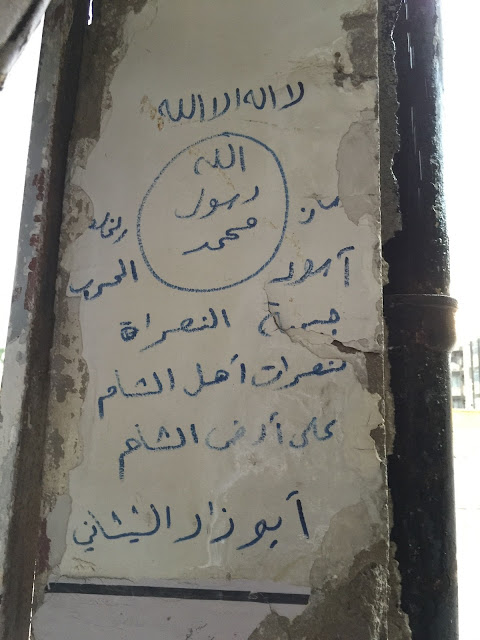 لا اله الا الله
الله
رسول
محمد
أسود الحرب
جبهة النصراة
نصرات أهل الشام
على أرض الشام
أبو زار الشيشاني